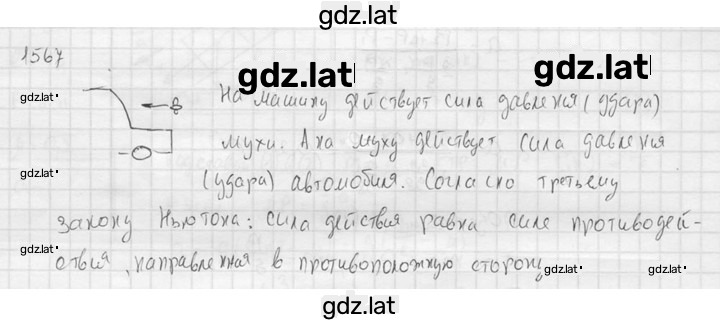 gdz.lat
1567
gdz.lat gdz.lat
gdz.lat
На машину действует сила давления (удара)
мухи. А на муху действует сила давления
gdz.lat
(удара) автомобиля. Согласно третьему
закону Ньютона: сила действия равна силе противодей-
gdz.lat
ствия, направленная в противоположную сторону
gdz.lat gdz.lat
gdz.lat